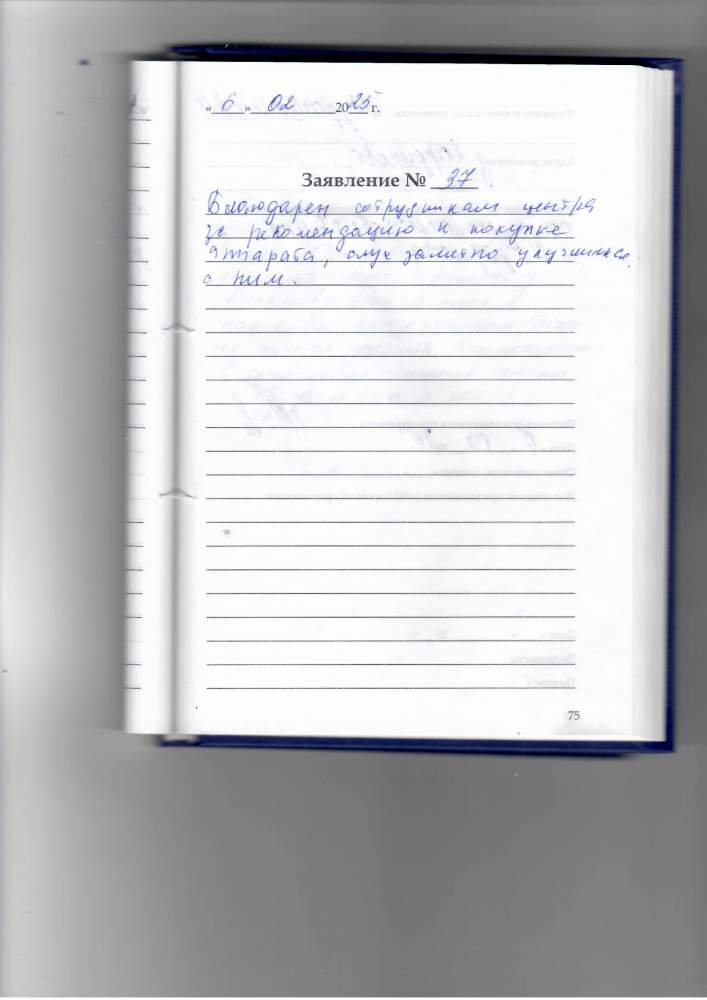 « 6 » 02 2025 г.
Заявление № 37
Благодарен сотрудникам центра
за рекомендацию к покупке
аппарата, слух заметно улучшился
с ним.
75